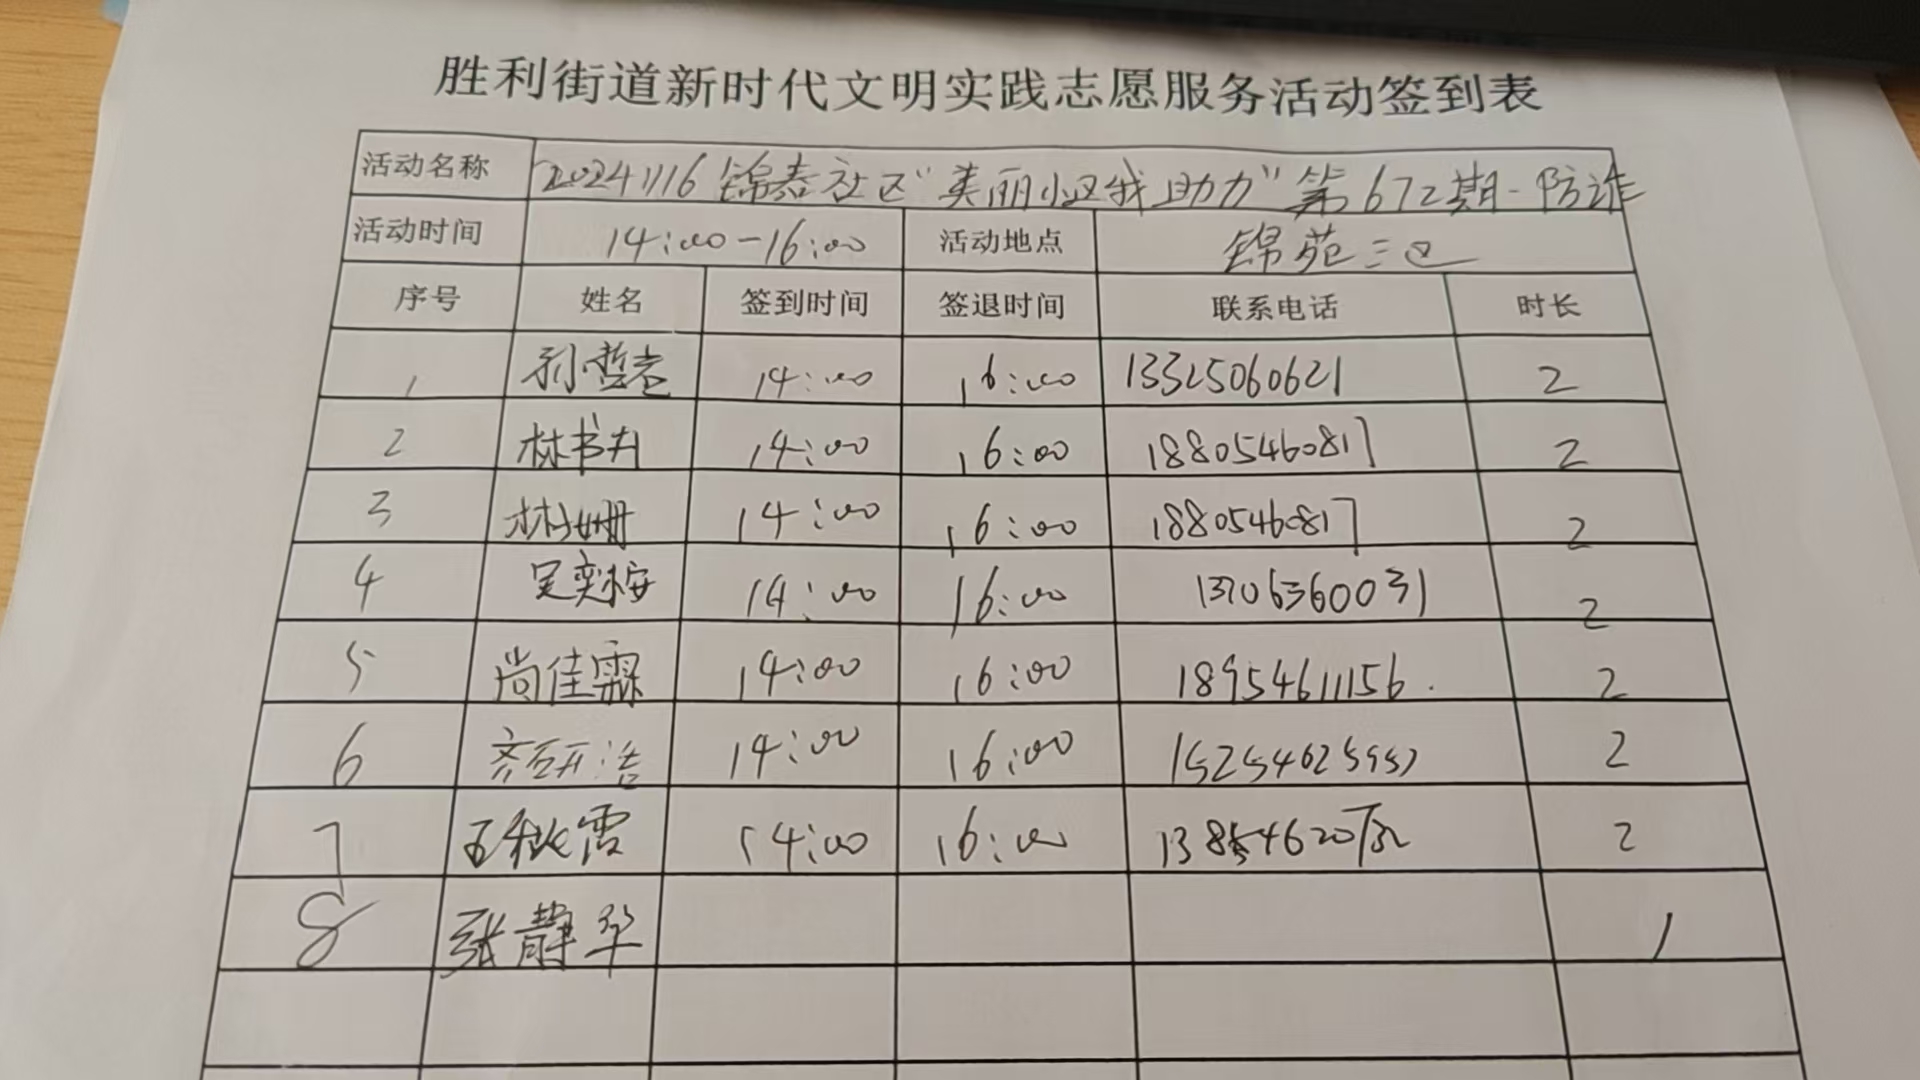 胜利街道新时代文明实践志愿服务活动签到表
活动名称 20241116 锦泰社区“美丽小区我助力”第672期-防诈
活动时间 14:00-16:00 活动地点 锦苑三区
序号 姓名 签到时间 签退时间 联系电话 时长
1 14:00 16:00 13325060621 2
2 14:00 16:00 18805460817 2
3 林姗 14:00 16:00 18805460817 2
4 14:00 16:00 13706360031 2
5 尚佳霖 14:00 16:00 18954611156 2
6 齐研浩 14:00 16:00 2
7 王秋霞 14:00 16:00 2
8 张静华 1